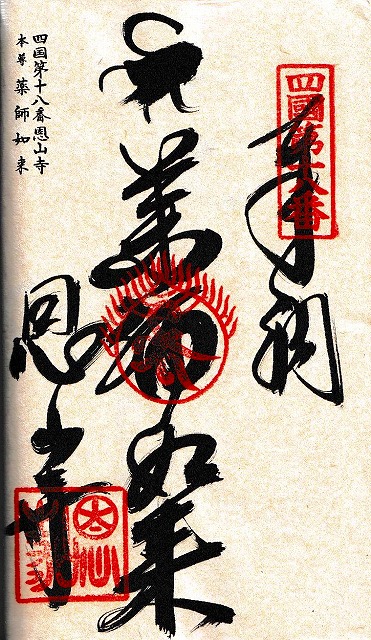 四國第十八番
奉納
薬師如来
恩山寺
四国第十八番恩山寺
本尊 薬師如来